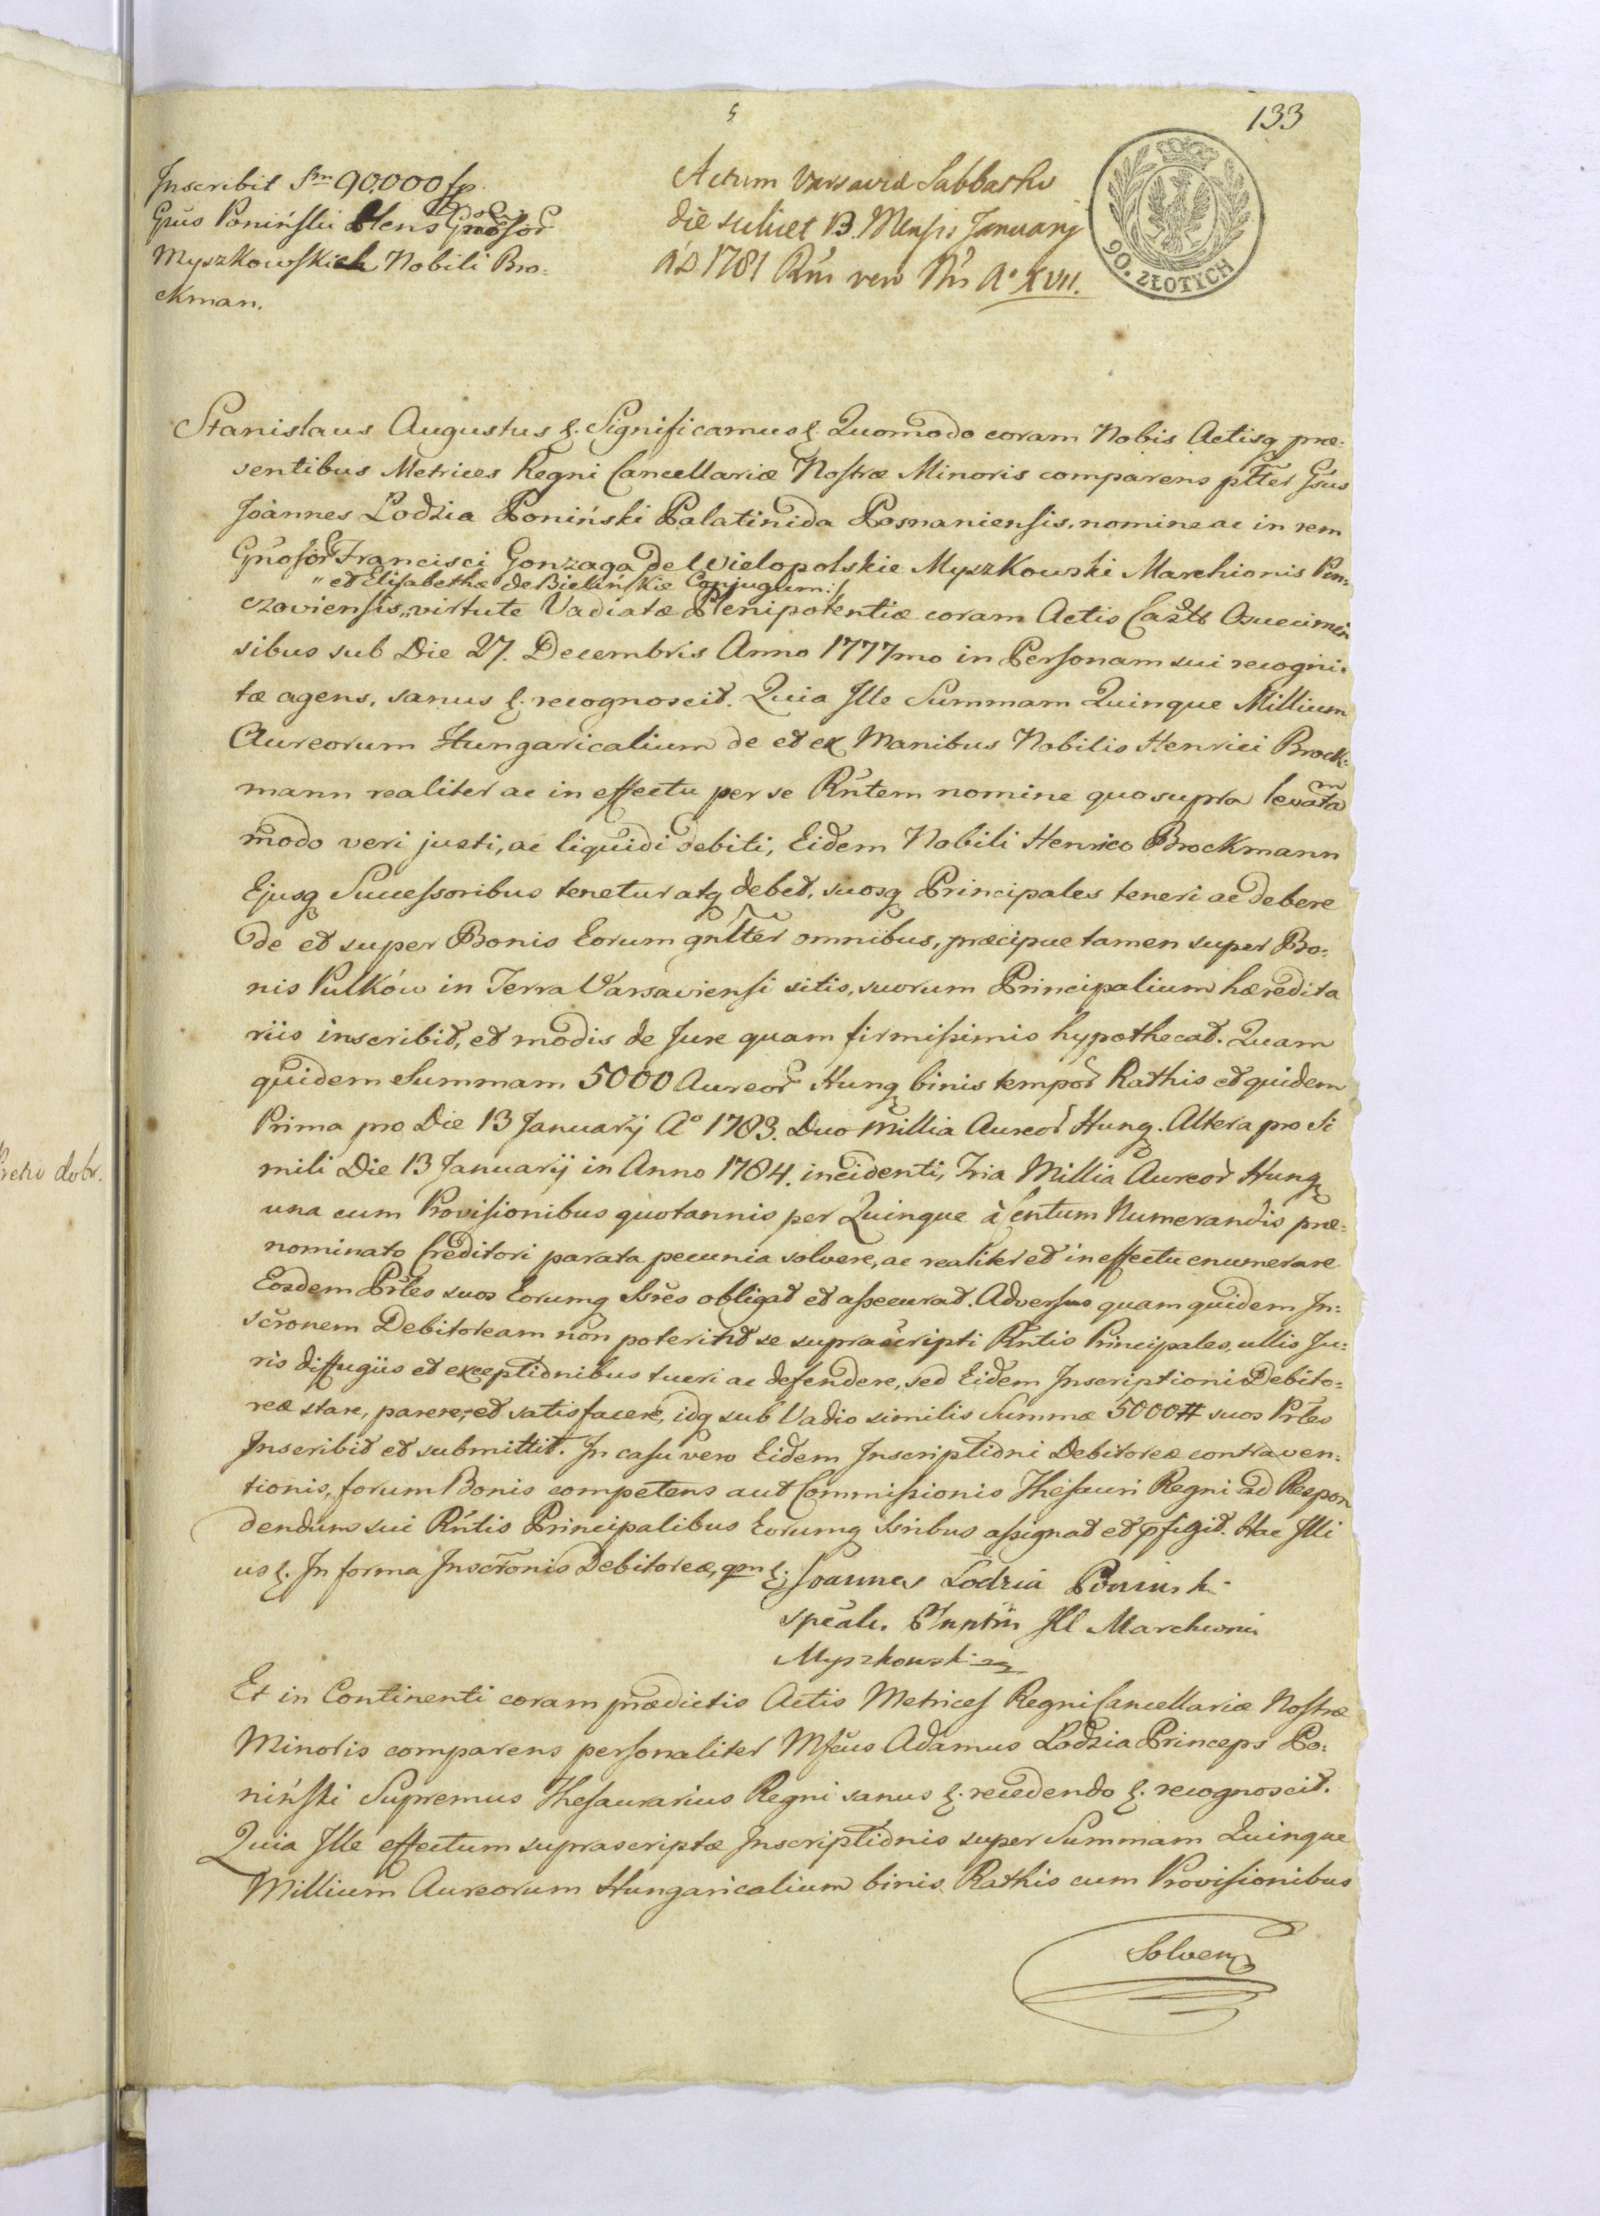 133
Inscribit Sm 90.000 fp
Gnus Poniński Plens Gnosor
Myszkowskich Nobili Bro:
ckman.
Actum Varsaviæ Sabbatho
die scilicet 13. Mensis Januarij
AD 1781 Rni vero Nri Ao XVII.
90. ZŁOTYCH
Stanislaus Augustus &. Significamus &. Quomodo coram Nobis Actisq præ:
sentibus Metrices Regni Cancellariæ Nostræ Minoris comparens pltter Gsus
Joannes Lodzia Poniński Palatinida Posnaniensis, nomine ac in rem
Gnosor Francisci Gonzaga de Wielopolskie Myszkowski Marchionis Pin:
" et Elisabethæ de Bielińskie Conjugum:/
czoviensis,,virtute Vadiatæ Plenipotentiæ coram Actis Castr Osviecimen
sibus sub Die 27. Decembris Anno 1777mo in Personam sui recogni:
tæ agens, sanus &. recognoscit. Quia Ille Summam Quinque Millium
Aureorum Hungaricalium de et ex Manibus Nobilis Henrici Brock:
mann realiter ac in effectu per se Rntem nomine quo supra levatam
modo veri justi, ac liquidi debiti, Eidem Nobili Henrico Brockmann
Ejusq Successoribus tenetur atq debet, suosq Principales teneri ac debere
de et super Bonis Eorum gnltter omnibus, præcipue tamen super Bo:
nis Pulków in Terra Varsaviensi sitis, suorum Principalium hæredita
riis inscribit, et modis de Jure quam firmissimis hypothecat. Quam
quidem Summam 5000 Aureor Hung binis tempor Rathis et quidem
Prima pro Die 13 Januarij Ao 1783. Duo Millia Aureor Hung. Altera pro Si
mili Die 13 Januarij in Anno 1784. incidenti, Tria Millia Aureor Hung
una cum Provisionibus quotannis per Quinque à Centum Numerandis præ:
nominato Creditori parata pecunia solvere, ac realiter et in effectu enumerare
Eosdem Prles suos Eorumq Ssres obligat et assecurat. Adversus quam quidem In:
scronem Debitoream non poterint se suprascripti Rntis Principales, ullis Ju:
ris diffugiis et exceptionibus tueri ac defendere, sed Eidem Inscriptioni Debito:
reæ stare, parere, et satisfacere, idq sub Vadio similis Summæ 5000# suos Prles
Inscribit et submittit. In casu vero Eidem Inscriptioni Debitoreæ contraven:
tionis, forum Bonis competens aut Commissionis Thesauri Regni ad Respon
dendum sui Rntis Principalibus Eorumq Ssribus assignat et pfigit. Hac Illi
us &. In forma Inscronis Debitoreæ, qm &. Joannes Lodzia Poninski
speale. Plnptn Ill Marchionis
Myszkowski
Et in Continenti coram prædictis Actis Metrices Regni Cancellariæ Nostræ
Minoris comparens personaliter Mfcus Adamus Lodzia Princeps Po:
niński Supremus Thesaurarius Regni sanus &. recedendo &. recognoscit.
Quia Ille effectum suprascriptæ Inscriptionis super Summam Quinque
Millium Aureorum Hungaricalium binis Rathis cum Provisionibus
Solven